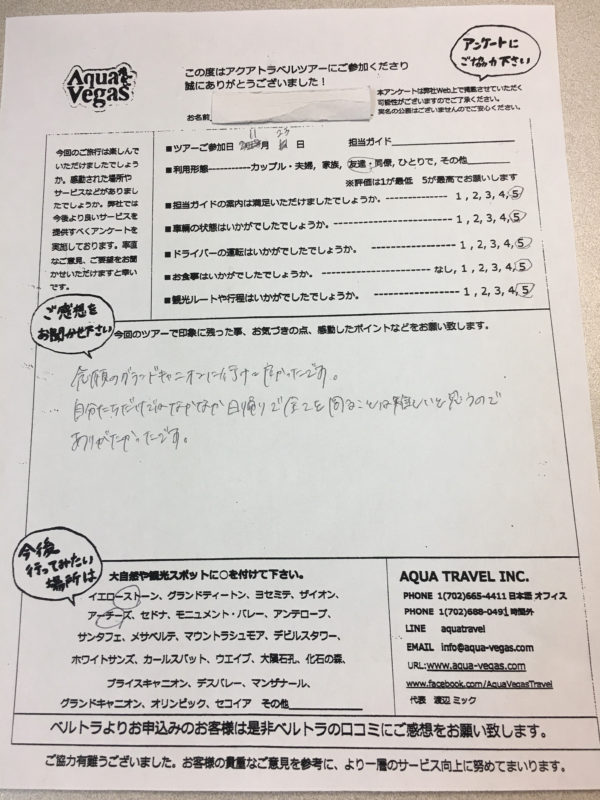 Aqua Vegas
この度はアクアトラベルツアーにご参加くださり
誠にありがとうございました！
アンケートに
ご協力下さい
お名前
本アンケートは弊社Web上で掲載させていただく
可能性がございますのでご了承ください。
実名の公表はございませんのでご安心ください。
今回のご旅行は楽しんで
いただけましたでしょう
か。感動された場所や
サービスなどがありまし
たでしょうか。弊社では
今後より良いサービスを
提供すべくアンケートを
実施しております。率直
なご意見、ご要望をお聞
かせいただけますと幸い
です。
11 23
■ツアーご参加日 月 日 担当ガイド
■利用形態-------------カップル・夫婦, 家族, 友達・同僚, ひとりで, その他
※評価は1が最低 5が最高でお願いします
■担当ガイドの案内は満足いただけましたでしょうか。 ---------- 1 , 2, 3, 4, 5
■車輌の状態はいかがでしたでしょうか。 ---------------------- 1 , 2, 3, 4, 5
■ドライバーの運転はいかがでしたでしょうか。 ---------------- 1 , 2, 3, 4, 5
■お食事はいかがでしたでしょうか。 ---------------- なし, 1 , 2, 3, 4, 5
■観光ルートや行程はいかがでしたでしょうか。 ---------------- 1, 2, 3, 4, 5
ご感想を
お聞かせ下さい
今回のツアーで印象に残った事、お気づきの点、感動したポイントなどをお願い致します。
念願のグランドキャニオンに行けて良かったです。
自分たちだけではなかなか日帰りで全てを回ることは難しいと思うので
ありがたかったです。
今後
行ってみたい
場所は
大自然や観光スポットに○を付けて下さい。
イエローストーン、グランドティートン、ヨセミテ、ザイオン、
アーチーズ、セドナ、モニュメント・バレー、アンテロープ、
サンタフェ、メサベルテ、マウントラシュモア、デビルスタワー、
ホワイトサンズ、カールスバット、ウエイブ、大隕石孔、化石の森、
ブライスキャニオン、デスバレー、マンザナール、
グランドキャニオン、オリンピック、セコイア その他
AQUA TRAVEL INC.
PHONE 1(702)665-4411 日本語 オフィス
PHONE 1(702)688-0491 時間外
LINE aquatravel
EMAIL info@aqua-vegas.com
URL:www.aqua-vegas.com
www.facebook.com/AquaVegasTravel
代表 渡辺 ミック
ベルトラよりお申込みのお客様は是非ベルトラの口コミにご感想をお願い致します。
ご協力有難うございました。お客様の貴重なご意見を参考に、より一層のサービス向上に努めてまいります。